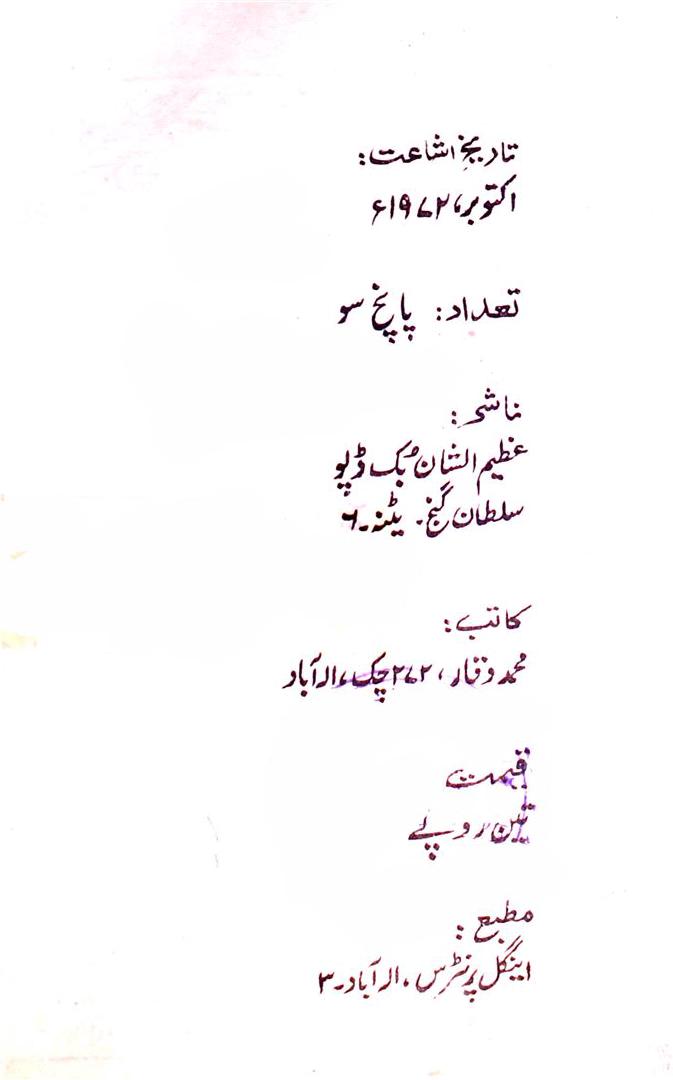 تاریخِ اشاعت:
اکتوبر، ۱۹۷۲ء
تعداد: پانچ سو
ناشر:
عظیم الشان بک ڈپو
سلطان گنج۔ پٹنہ۔۶
کاتب:
محمد وقار، ۲۷۲ چک، الہ آباد
قیمت
تین روپے
مطبع:
اینگل پرنٹرس، الہ آباد۔۳